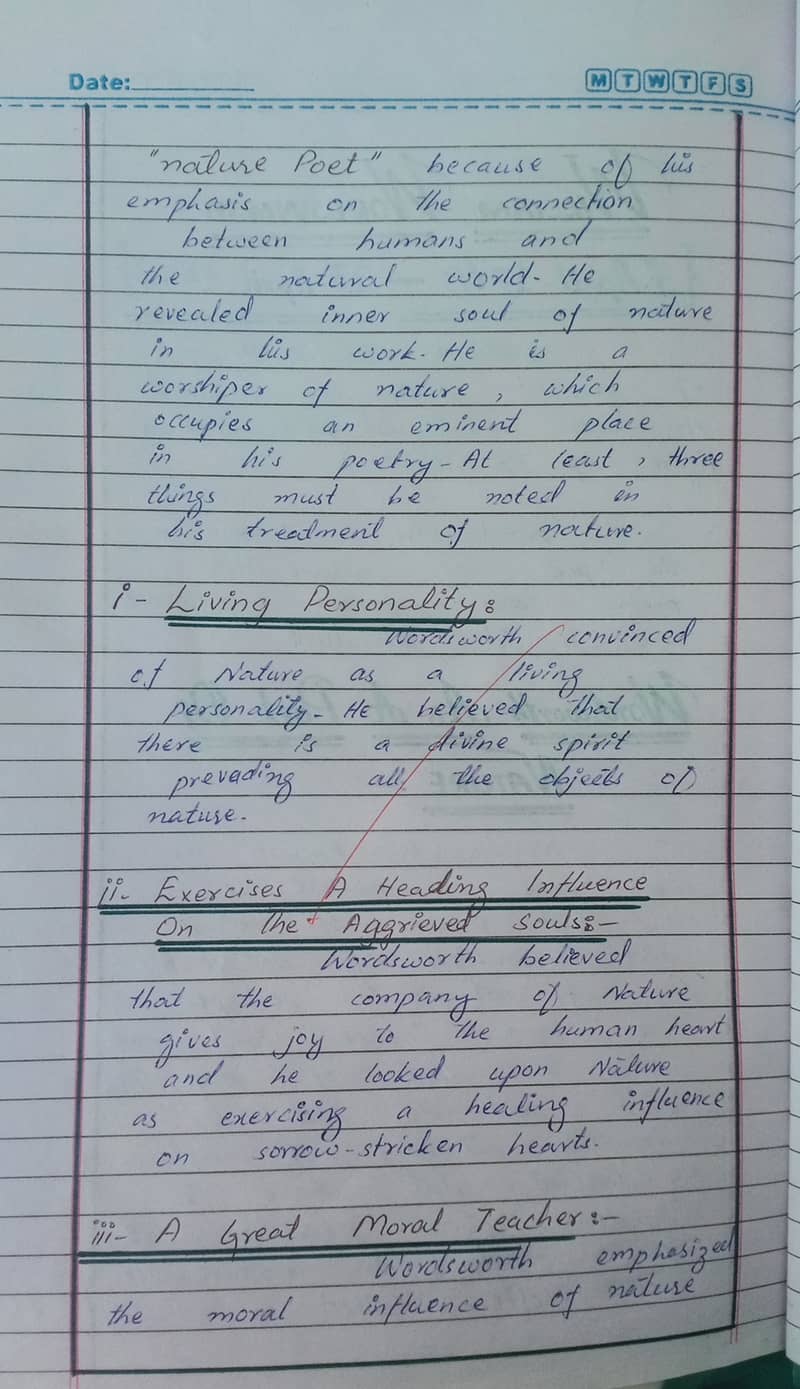 Date:
M T W T F S
"nature Poet" because of his
emphasis on the connection
between humans and
the natural world- He
revealed inner soul of nature
in his work- He is a
worshiper of nature, which
occupies an eminent place
in his poetry- At least, three
things must be noted in
his treatment of nature.
i- Living Personality:
Wordsworth convinced
of Nature as a living
personality- He believed that
there is a divine spirit
prevading all the objects of
nature-
ii- Exercises A Heading Influence
On the Aggrieved Souls:-
Wordsworth believed
that the company of Nature
gives joy to the human heart
and he looked upon Nature
as exercising a healing influence
on sorrow-stricken hearts.
iii- A Great Moral Teacher:-
Wordsworth emphasized
the moral influence of nature